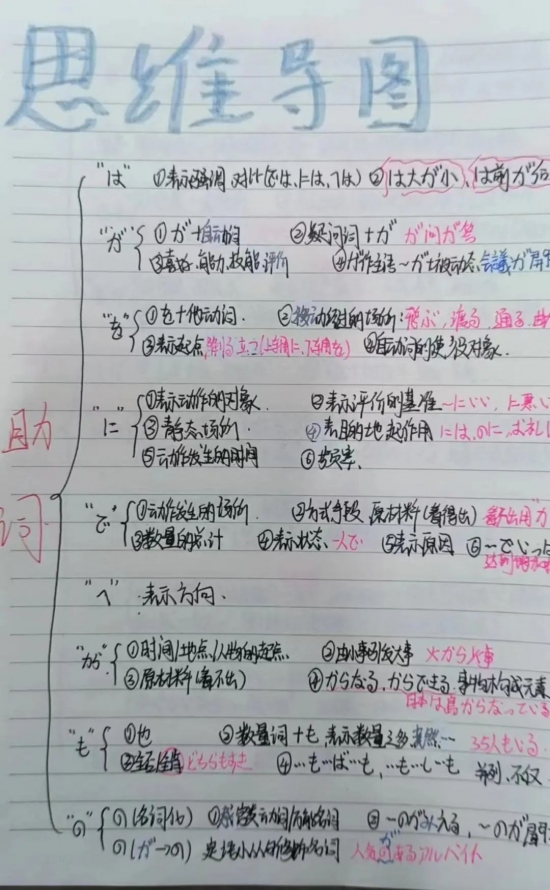 思维导图
助词
"は" ①表示强调 对比(では,には,ては) ② は大が小,は前が
"が" ①が+自动词 ②疑问词+が が问が答
③喜好,能力,技能,评价 ④ 会議が
"を" ①を+他动词. ②移动经过的场所: 飛ぶ,渡る,通る,
③表示起点, ④自动词的使役对象.
"に" ①表示动作的对象. ②表示评价的基准 ~にいい,に寒い
③静态场所. ④表目的 には,のに,
⑤动作发生的时间 ⑥频率.
"で" ①动作发生的场所. ②方式手段 原材料(看得出)
③数量的总计 ④表示状态. 一人で ⑤表示原因 ⑥
"へ" 表示方向.
"から" ①时间/地点/人物的起点. ②由小事引发大事 火から火事
③原材料(看不出) ④からなる,からできる 事物构成元素
日本は島からなっている
"も" ①也 ②数量词+も 表示数量之多 竟然… 35人もいる
③全否/全肯 どちらもすき ④…も…ば…も,…も…し…も 并列,不仅
"の" の(名词化) ②~のがみえる,~のが
の(が→の) 定语小从句修饰名词 人気のあるアルバイト
が